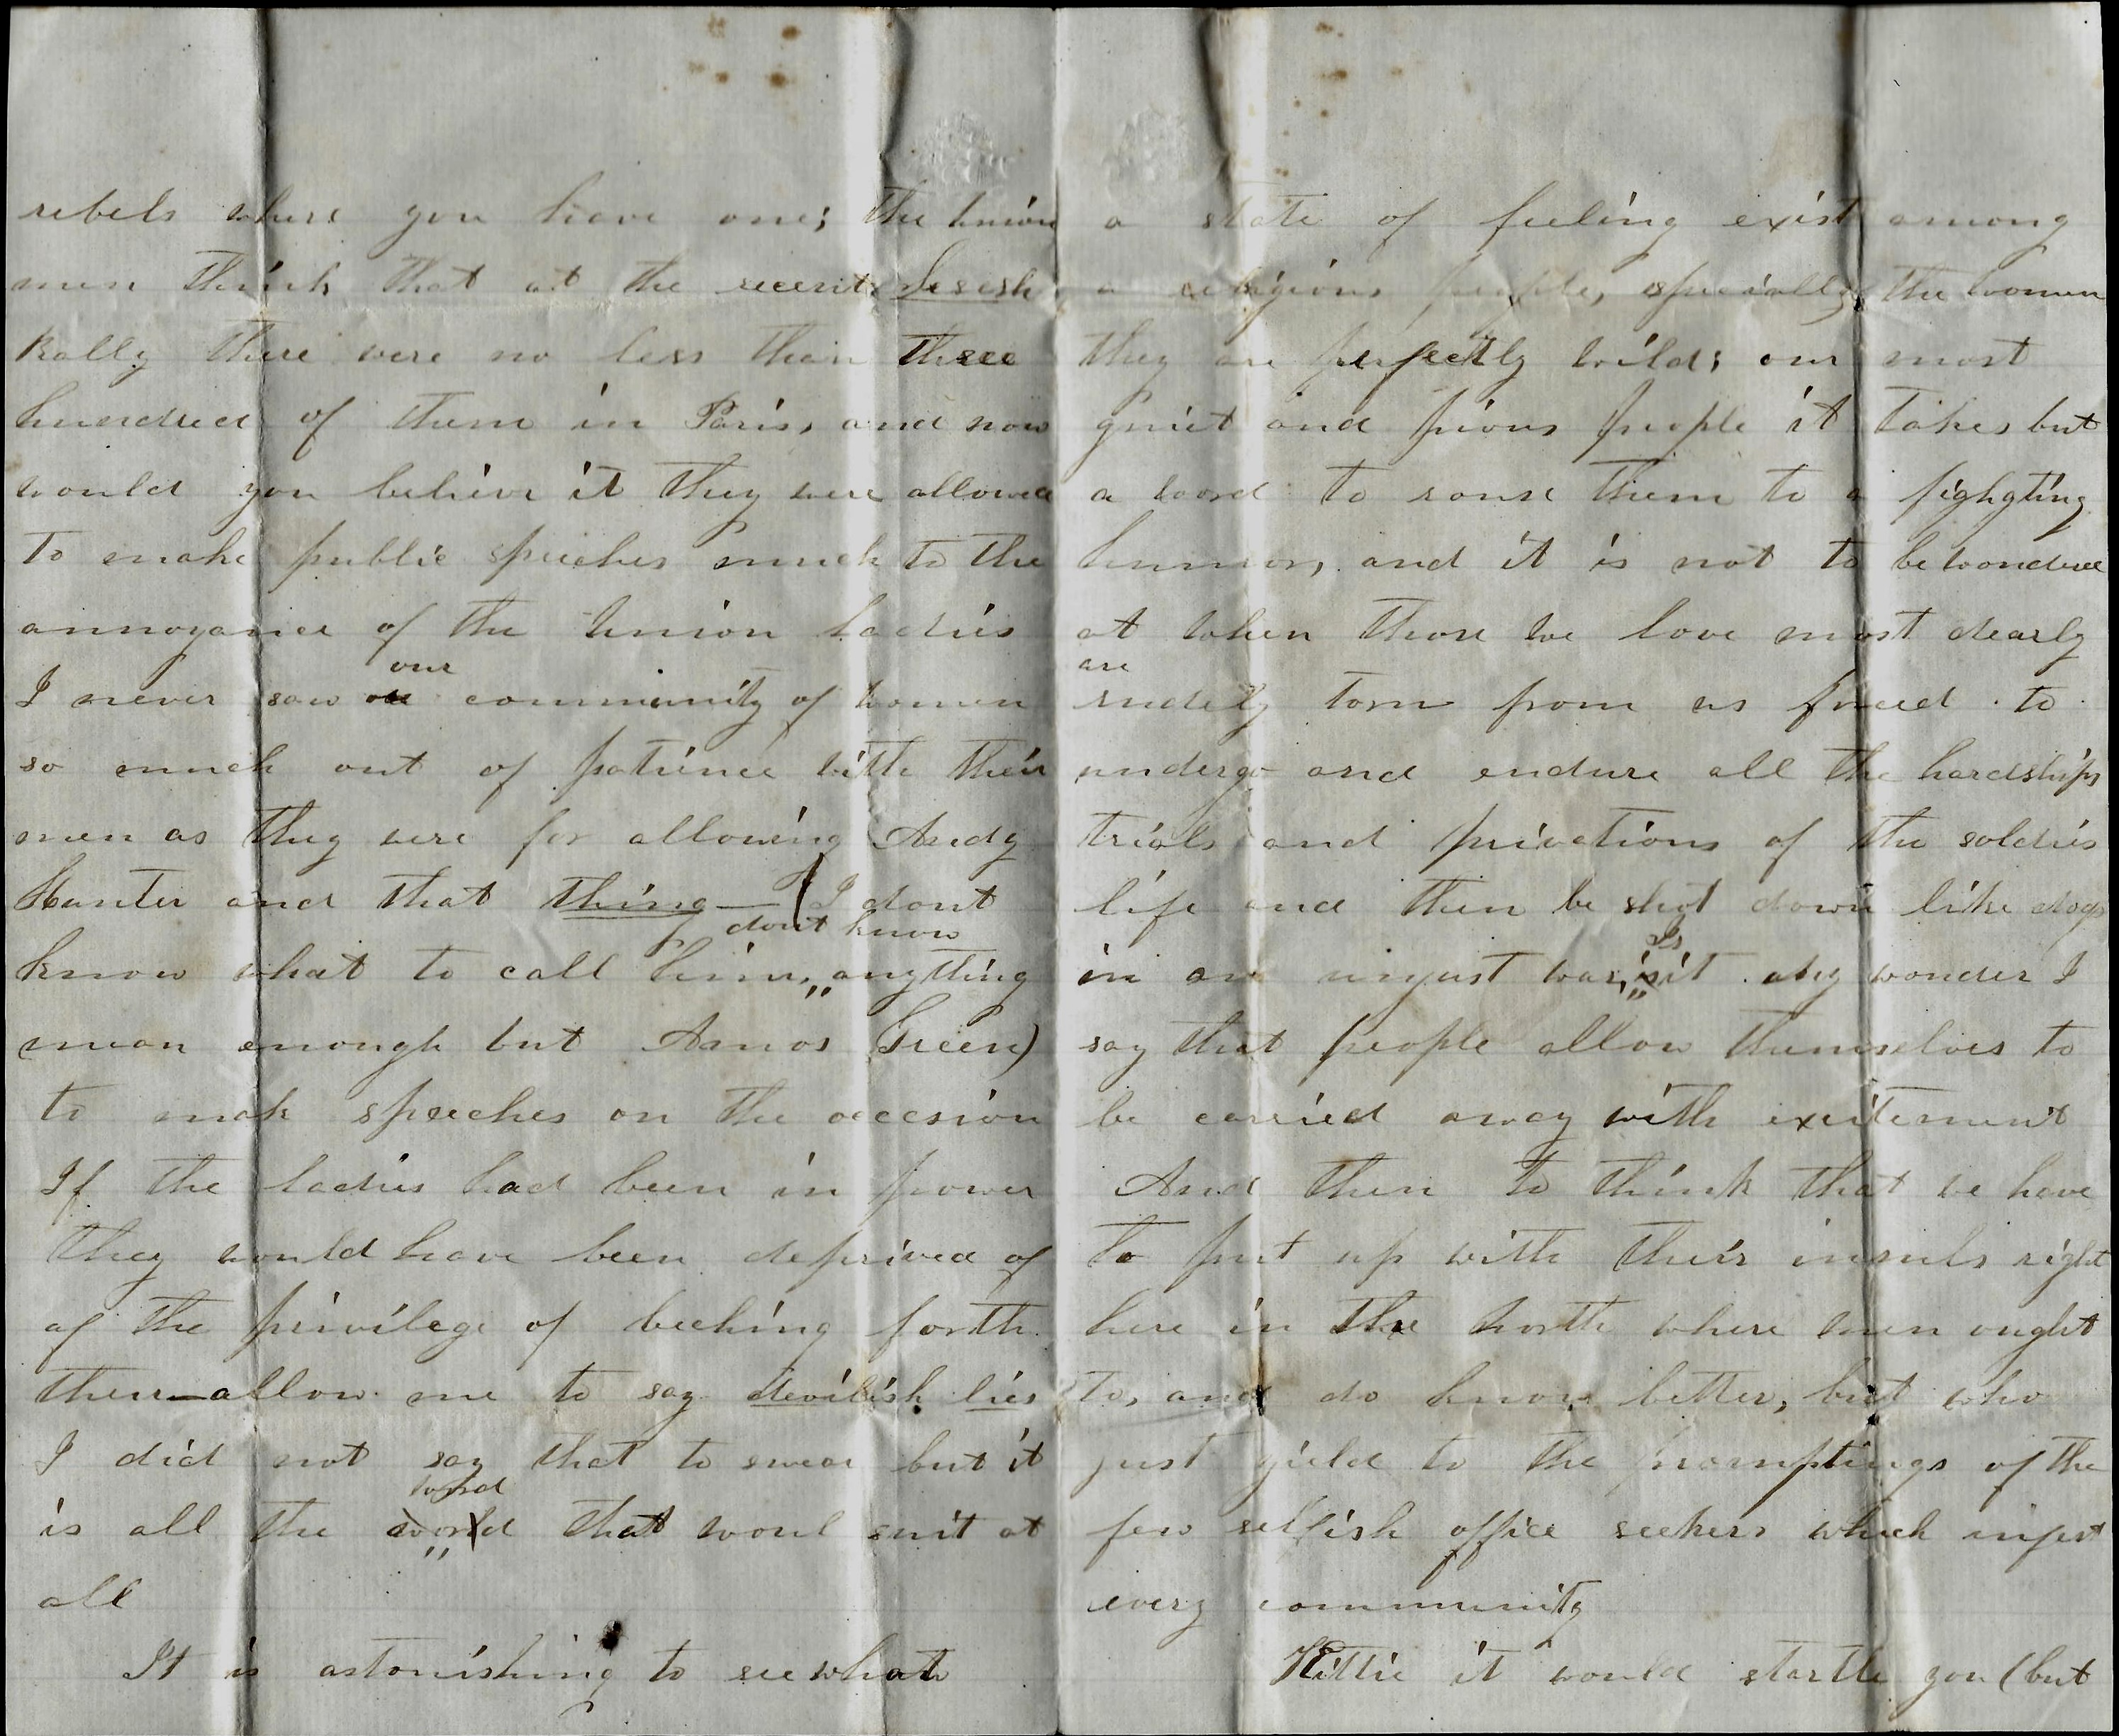 rebels where you have one; the Union
men think that at the recent Sesesh
Rally there were no less than three
hundred of them in Paris, and now
would you believe it they were allowed
to make public speeches much to the
annoyance of the Union Ladies
our
I never saw community of women
so much out of patience with their
men as they were for allowing Andy
Hunter and that thing—(I dont
dont know
know what to call him,, anything
mean enough but Amos Green)
to mak speeches on the occasion
If the ladies had been in power
they would have been deprived of
of the privilege of beching forth
their—allow me to say devilish lies
I did not say that to swear but it
word
is all the world that woul suit at
all
It is astonishing to see what
a state of feeling exist among
a religious people, specially the women
they are perfectly wild; our most
quiet and pious people it takes but
a word to rouse them to a fighgting
humor, and it is not to be wondered
at when those we love most dearly
are
rudely torn from us forced to
undergo and endure all the hardships
trials and privations of the soldies
life and then be shot down like dogs
Is
in an unjust war, is it any wonder I
say that people allow themselves to
be carried away with exsitement
And then to think that we have
to put up with their insuls right
here in the North where men ought
to, and do know better, but who
just yield to the promptings of the
few selfish office seekers which infest
every community
Hittie it would startle you (but